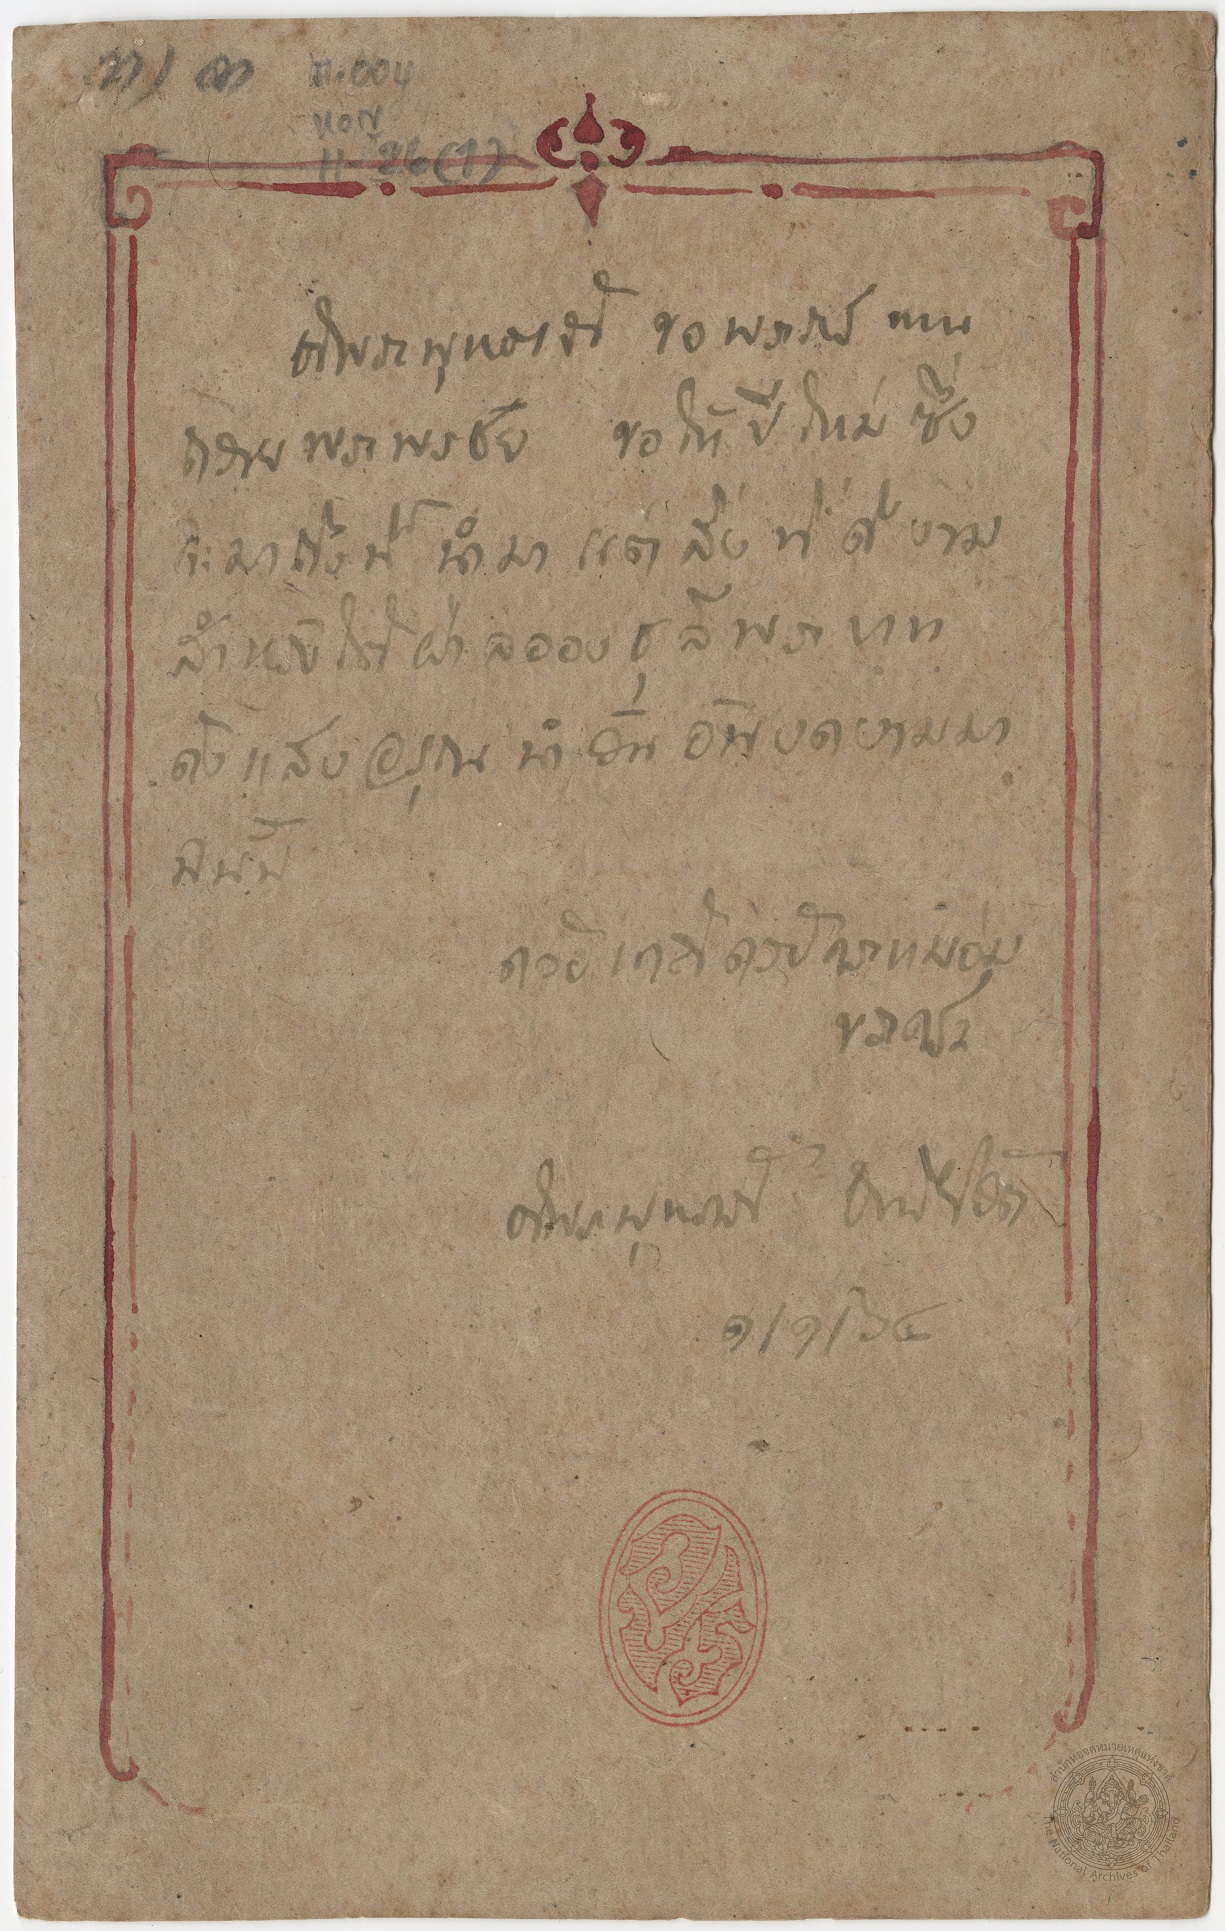 ภ.004
หวญ
11-26(1)
ข้าพระพุทธเจ้า ขอพระราชทาน
ถวายพระพรชัย ขอให้ปีใหม่ซึ่ง
จะมาถึงนี้ นำมาแต่สิ่งที่ดีงาม
สำหรับใต้ฝ่าลอองธุลีพระบาท
ดังแสงอรุณนำวัน
ด้วยเกล้าด้วยกระหม่อม
ขอเดชะ
ข้าพระพุทธเจ้า
๑/๑/๖๔
สำนักหอจดหมายเหตุแห่งชาติ
The National Archives of Thailand